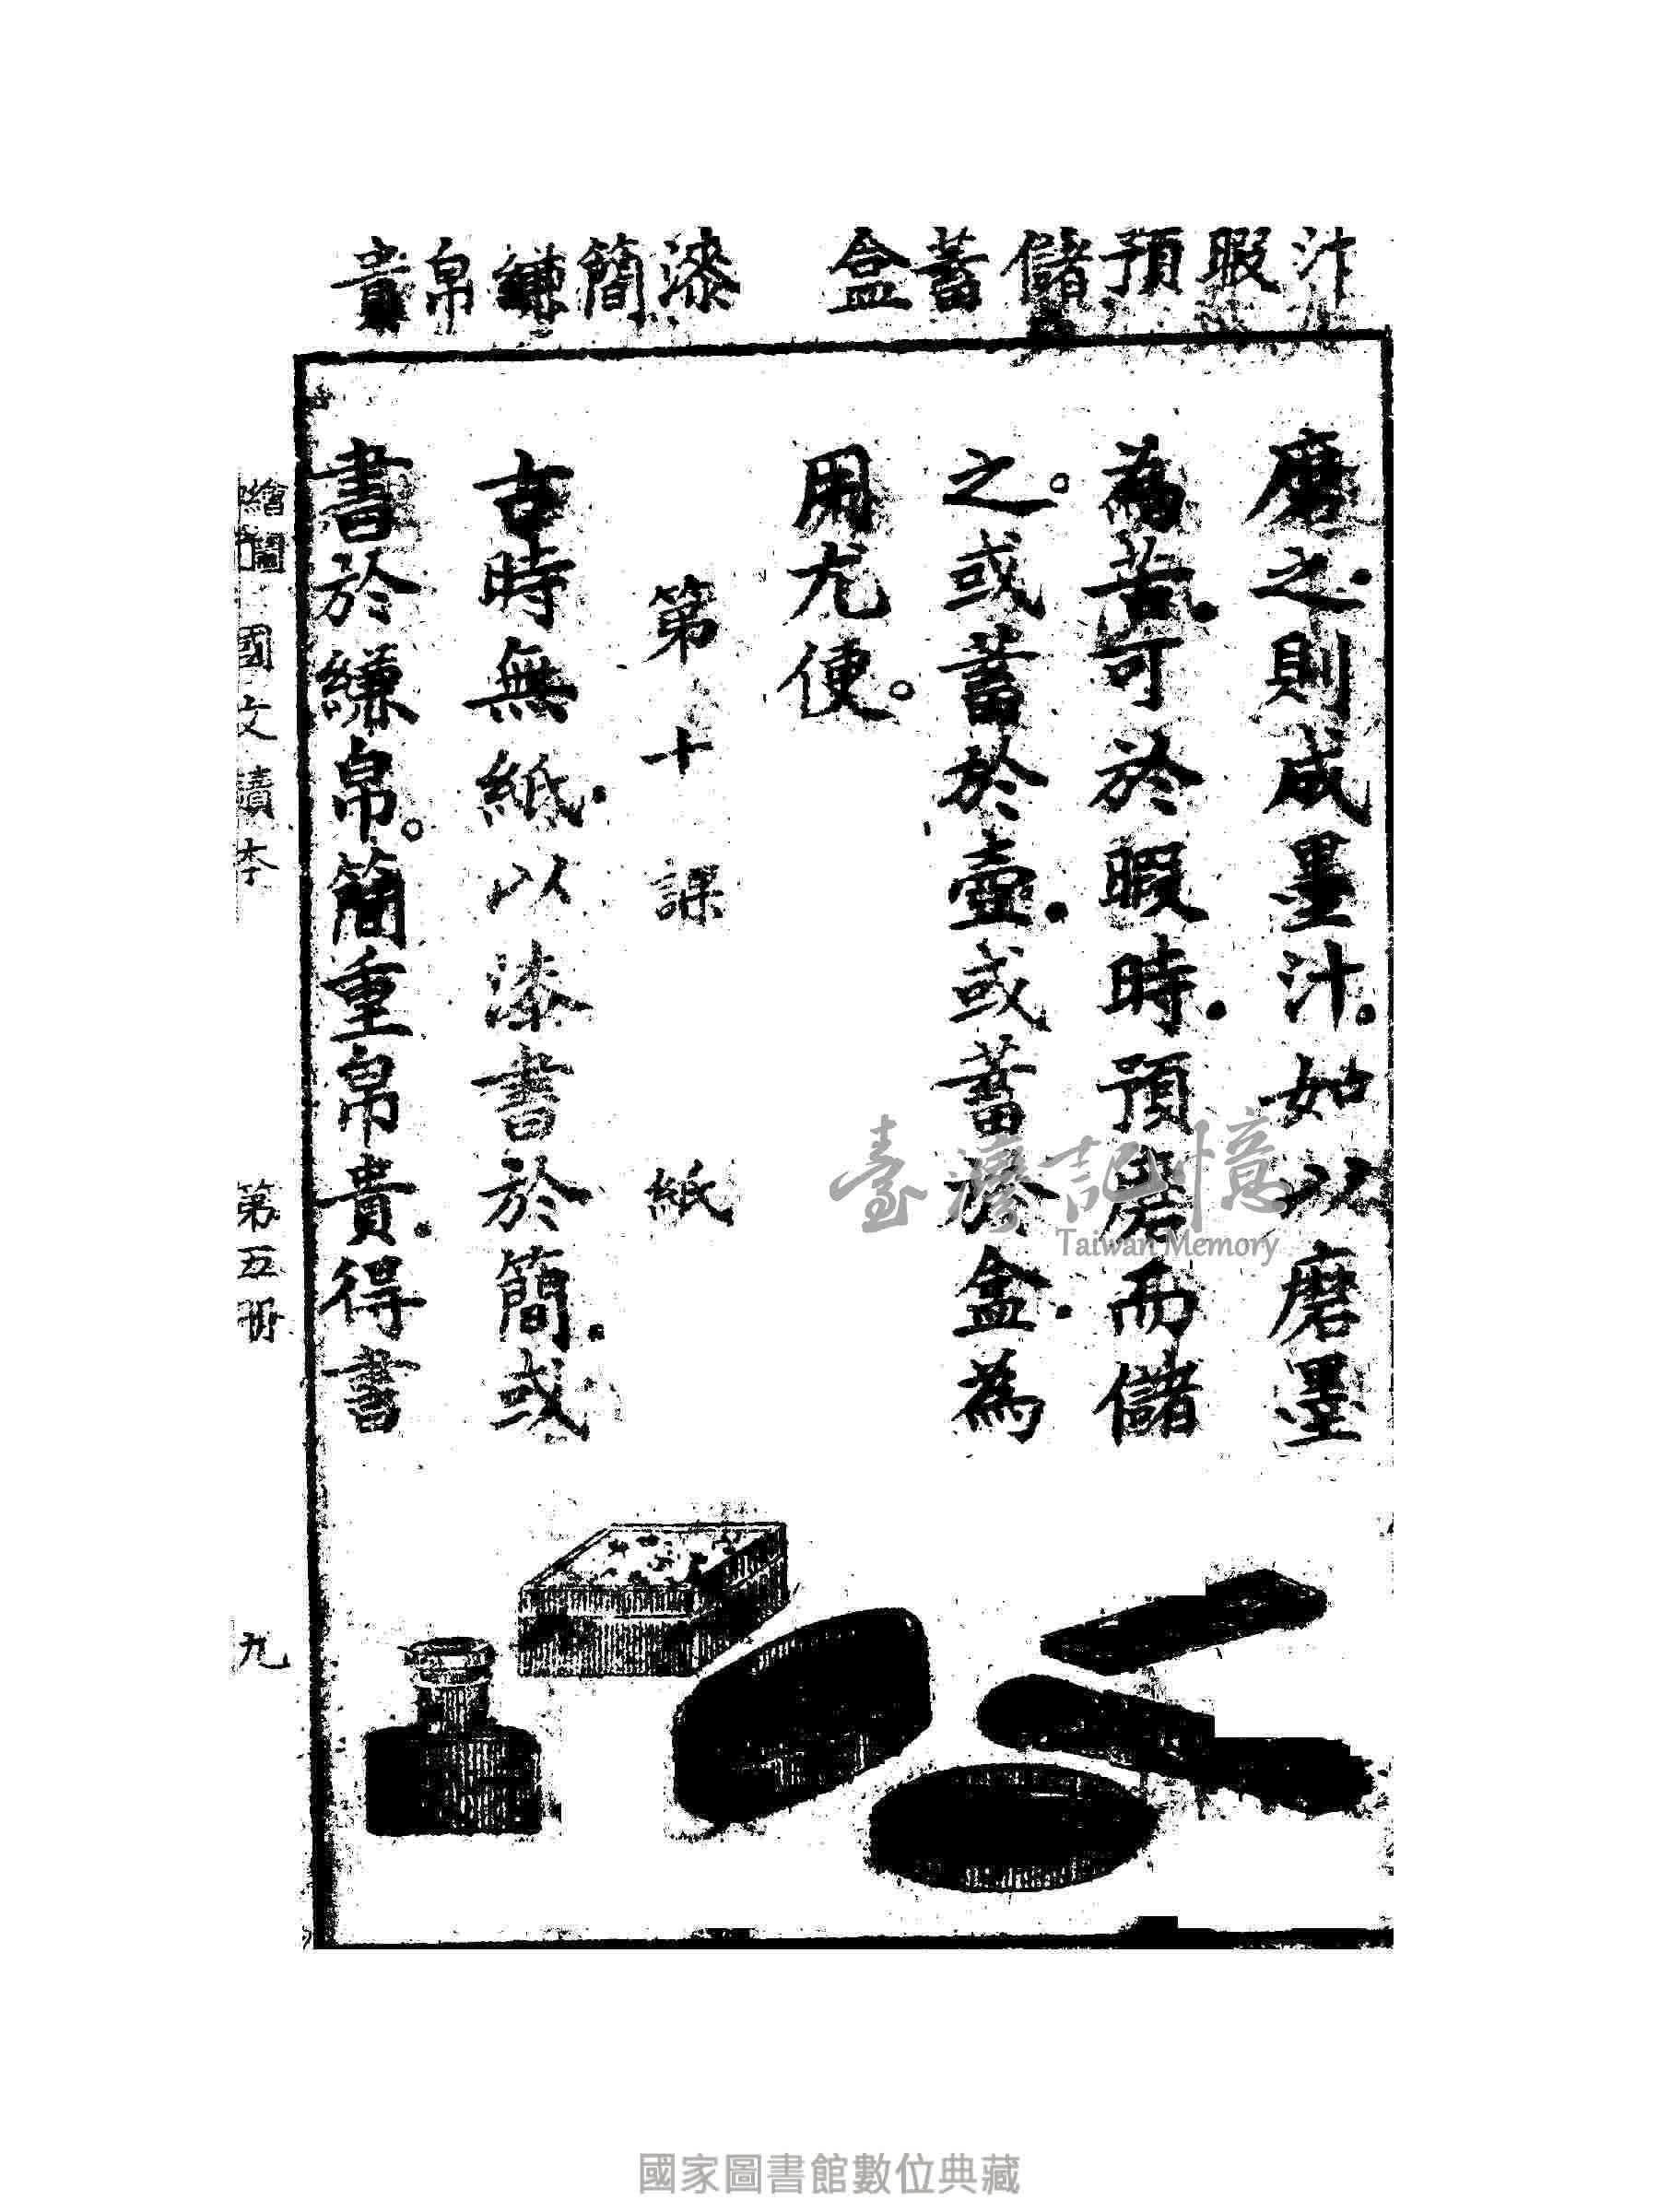 汁暇預儲蓄盒
漆簡縑帛貴
磨之．則成墨汁。如以磨墨
為苦．可於暇時．預磨而儲
之。或蓄於壺．或蓄於盒．為
用尤便。
第十課　紙
古時無紙．以漆書於簡．或
書於縑帛。簡重帛貴．得書
繪圖國文讀本
第五冊
九
臺灣記憶
Taiwan Memory
國家圖書館數位典藏